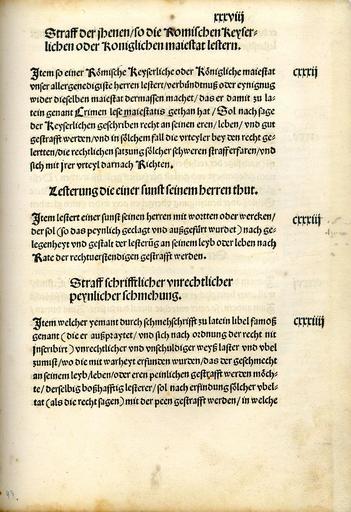 xxxviij
Straff der jhenen/so die Romischen Keyser-
lichen oder Koniglichen maiestat lestern.
Jtem so einer Römische Keyserliche oder Königliche maiestat cxxxij
vnser allergenedigiste herren lestert/verbündtnuß oder eynigung
wider dieselben maiestat dermassen machet/das er damit zu la-
tein genant Crimen lese maiestatis gethan hat/Sol nach sage
der Keyserlichen geschriben recht an seinen eren/leben/vnd gut
gestrafft werden/vnd in solchem fall die vrteyler bey den recht ge-
lertten/die rechtlichen satzung sölcher schweren straff erfaren/vnd
sich mit jrer vrteyl darnach Richten.
Lesterung die einer sunst seinem herren thut.
Jtem lestert einer sunst seinen herren mit wortten oder wercken/ cxxxiij
der sol (so das peynlich geclagt vnd außgefürt wurdet) nach ge-
legenheyt vnd gestalt der lesterūg an seinem leyb oder leben nach
Rate der rechtuerstendigen gestrafft werden.
Straff schrifftlicher vnrechtlicher
peynlicher schmehung.
Jtem welcher yemant durch schmehschrifft zu latein libel famoß cxxxiiij
genant (die er außpraytet/vnd sich nach ordnung der recht nit
jnscribirt) vnrechtlicher vnd vnschuldiger weyß laster vnd vbel
zumist/wo die mit warheyt erfunden wurden/das der geschmecht
an seinem leyb/leben/oder eren peinlichen gestrafft werden möch-
te/derselbig boßhafftig lesterer/sol nach erfindung sölcher vbel-
tat (als die recht sagen) mit der peen gestrafft werden/in welche